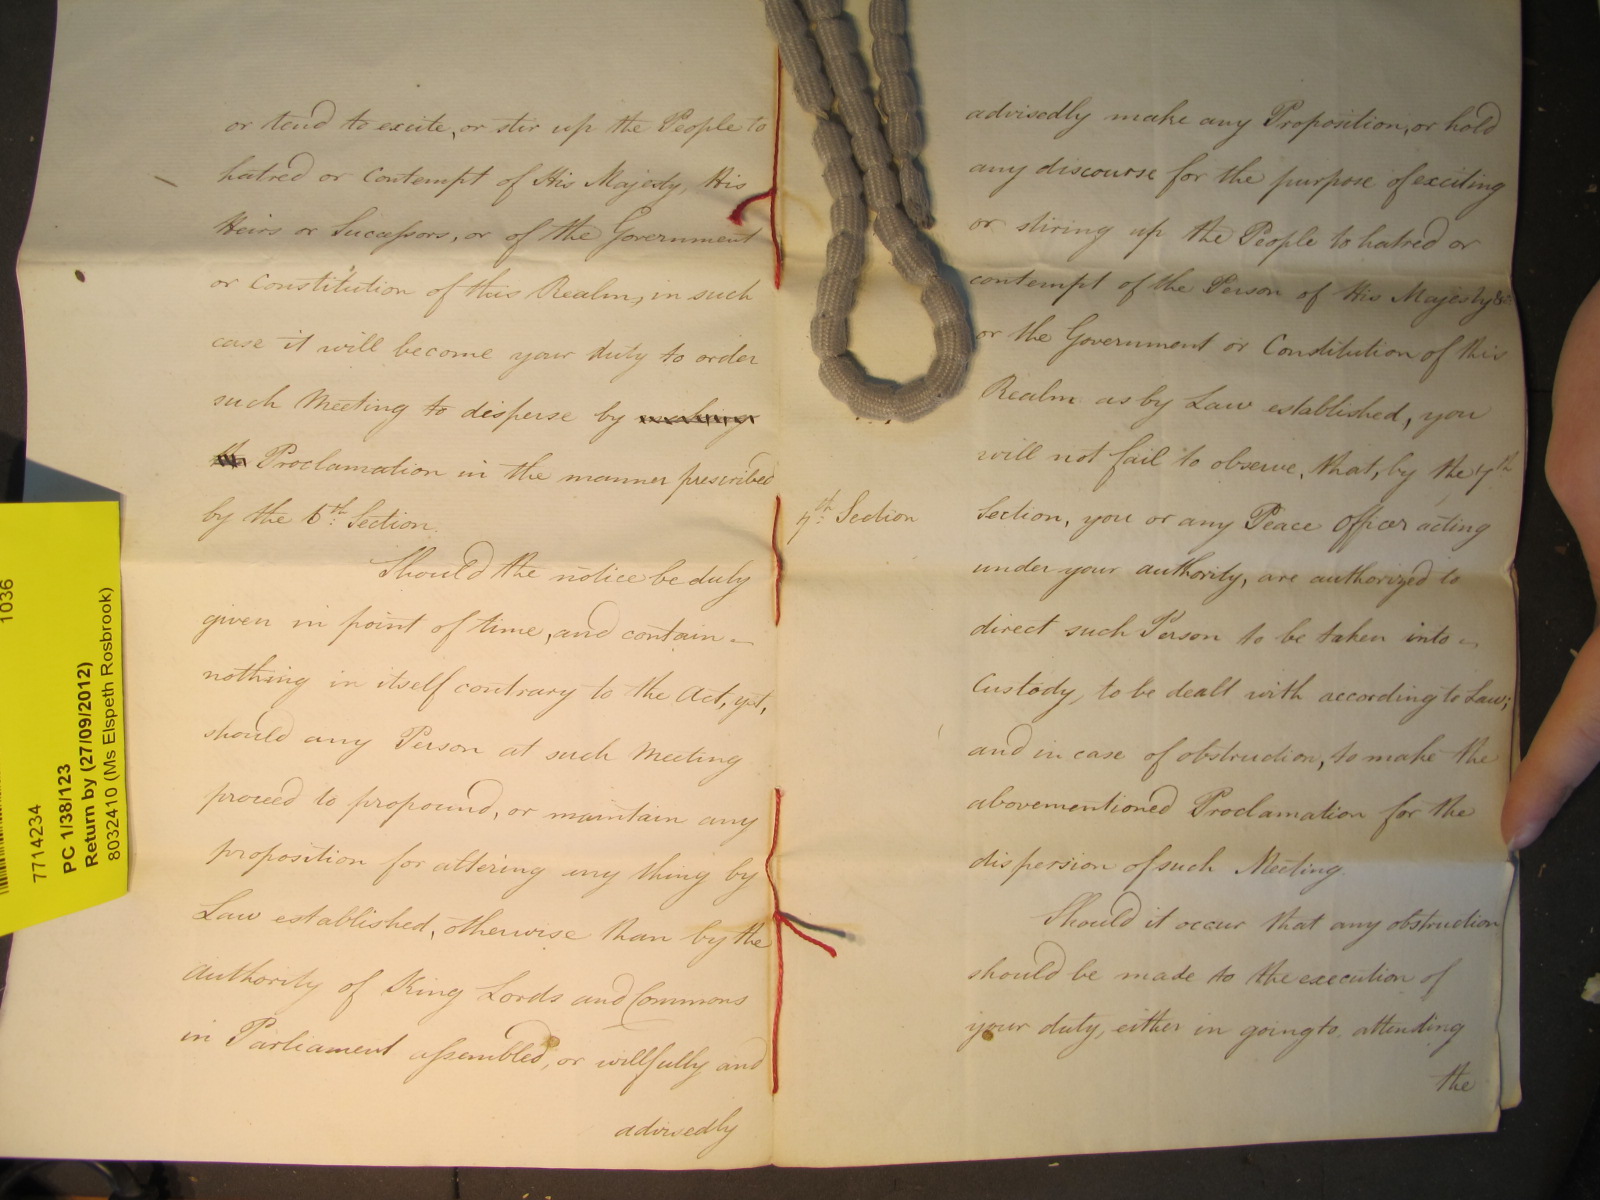 or tend to excite, or stir up the People to
hatred or Contempt of His Majesty, His
Heirs or Successors, or of the Government
or Constitution of this Realm, in such
case it will become your duty to order
such Meeting to disperse by
Proclamation in the manner prescribed
by the 6th. Section.
Should the notice be duly
given in point of time, and contain=
nothing in itself contrary to the Act, yet,
should any Person at such Meeting
proceed to propound, or maintain any
proposition for altering any thing by
Law established, otherwise than by the
Authority of King Lords and Commons
in Parliament assembled, or willfully and
advisedly
advisedly make any Proposition, or hold
any discourse for the purpose of exciting
or stiring up the People to hatred or
contempt of the Person of His Majesty &c
or the Government or Constitution of this
Realm as by Law established, you
will not fail to observe, that, by the 7th
7th. Section
Section, you or any Peace Officer acting
under your authority, are authorized to
direct such Person to be taken into=
Custody, to be dealt with according to Law;
and in case of obstruction, to make the
abovementioned Proclamation for the
dispersion of such Meeting.
Should it occur that any obstruction
should be made to the execution of
your duty, either in going to, attending
the
1036
7714234
PC 1/38/123
Return by (27/09/2012)
8032410 (Ms Elspeth Rosbrook)